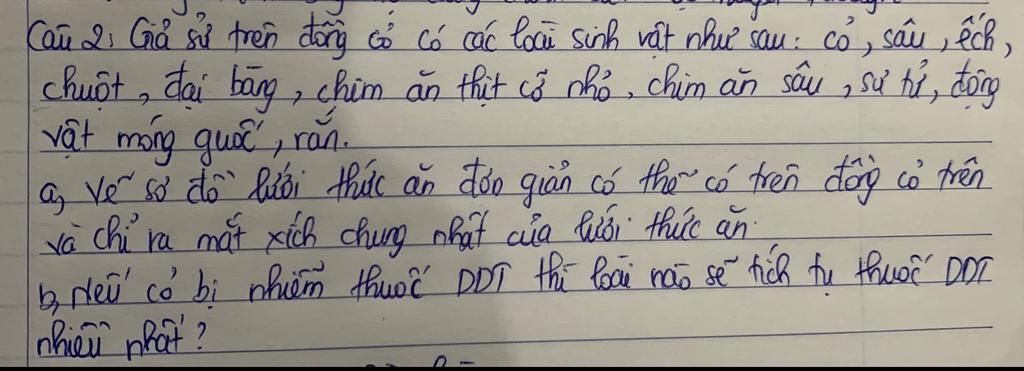 Câu 2: Giả sử trên đồng cỏ có các loài sinh vật như sau: cỏ, sâu, ếch,
chuột, đại bàng, chim ăn thịt cỡ nhỏ, chim ăn sâu, sư tử, động
vật móng guốc, rắn.
a, Vẽ sơ đồ lưới thức ăn đơn giản có thể có trên đồng cỏ trên
và chỉ ra mắt xích chung nhất của lưới thức ăn.
b, Nếu cỏ bị nhiễm thuốc DDT thì loài nào sẽ tích tụ thuốc DDT
nhiều nhất?